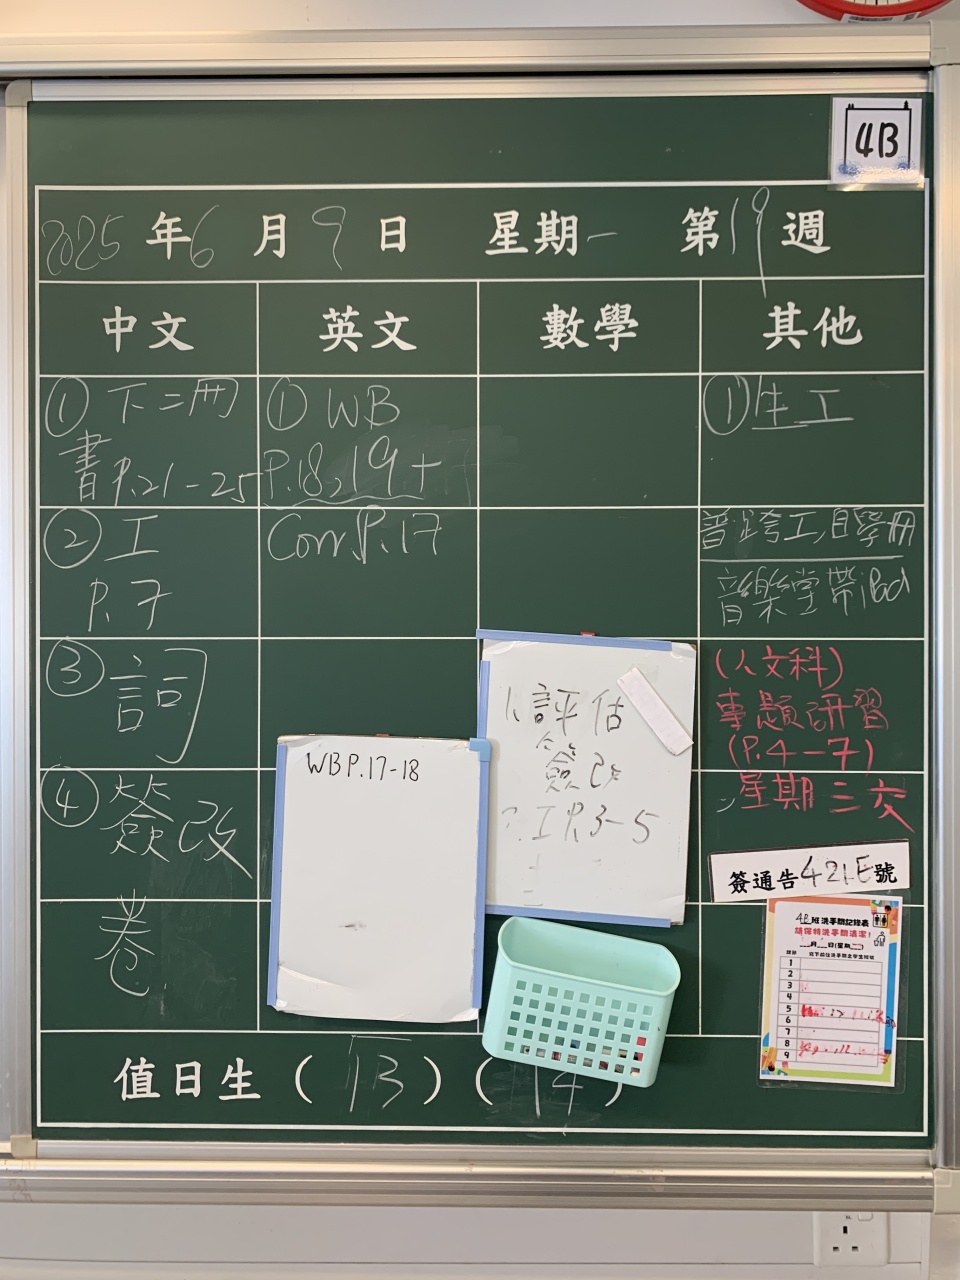 4B
2025年6月9日 星期一 第19週
中文 英文 數學 其他
① 下二冊
書P.21-25
② 工
P.7
③ 詞
④ 簽改
卷
① WB
P.18,19+
Corr.P.17
WB P.17-18
1.評估
簽改
2.工P.3-5
① 生工
普跨工,自學冊
音樂堂帶iPad
(人文科)
專題研習
(P.4-7)
星期三交
簽通告421E號
4B班洗手間記錄表
請保持洗手間清潔!
月 日(星期 )
1
2
3
4
5
6
7
8
9
值日生(13)(14)